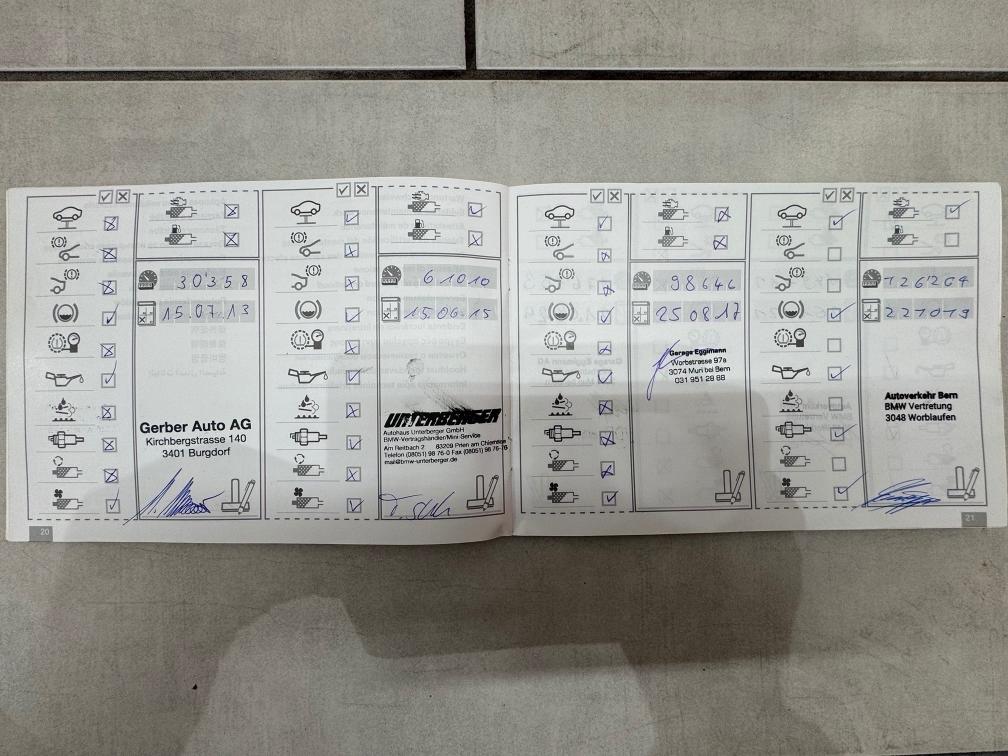 30'358
15.07.13
Gerber Auto AG
Kirchbergstrasse 140
3401 Burgdorf
20
61010
15.06.15
UNTERBERGER
Autohaus Unterberger GmbH
BMW-Vertragshändler/Mini-Service
Am Reitbach 2 83209 Prien am Chiemsee
Telefon (08051) 98 76-0 Fax (08051) 98 76-76
mail@bmw-unterberger.de
98646
25 08 17
Garage Eggimann
Worbstrasse 97a
3074 Muri bei Bern
031 951 28 88
126'264
Autoverkehr Bern
BMW Vertretung
3048 Worblaufen
21